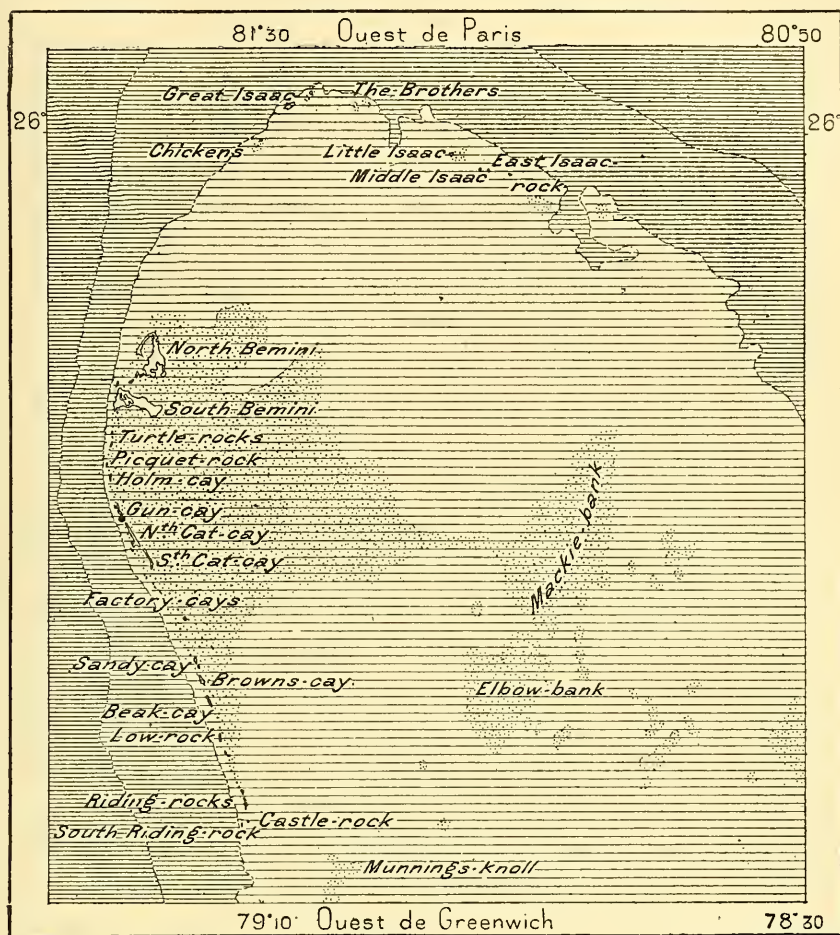 81°30 Ouest de Paris 80°50
Great Isaac The Brothers
26° 26°
Chickens Little Isaac East Isaac-
Middle Isaac rock
North Bemini
South Bemini
Turtle-rocks
Picquet-rock
Holm-cay
Gun-cay
Nth Cat-cay
Sth Cat-cay
Mackie-bank
Factory-cays
Sandy-cay
Browns-cay
Elbow-bank
Beak-cay
Low-rock
Riding-rocks
Castle-rock
South-Riding-rock
Munnings-knoll
79°10' Ouest de Greenwich 78°30